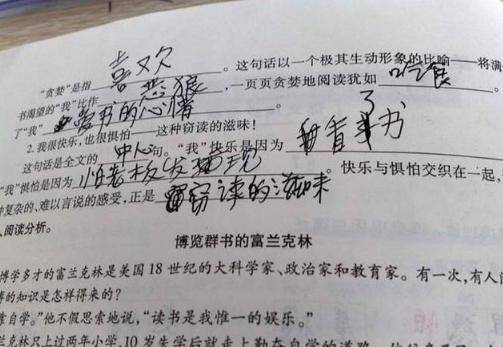 "贪婪"是指 喜欢 。这句话以一个极其生动形象的比喻——将满
书渴望的"我"比作 恶狼 ,一页页贪婪地阅读犹如 吃食 。
了"我" 爱书的心情
2. 我很快乐,也很惧怕——这种窃读的滋味!
这句话是全文的 中心 句。"我"快乐是因为 看了书
"我"惧怕是因为 怕老板发现 。快乐与惧怕交织在一起,
种复杂的、难以言说的感受,正是 窃读的滋味
、阅读分析。
博览群书的富兰克林
博学多才的富兰克林是美国18世纪的大科学家、政治家和教育家。有一次,有人
博的知识是怎样得来的?
靠自学。"他不假思索地说,"读书是我惟一的娱乐。"
兰克林只上过两年小学,10岁失学后就走上勤奋自学的道路